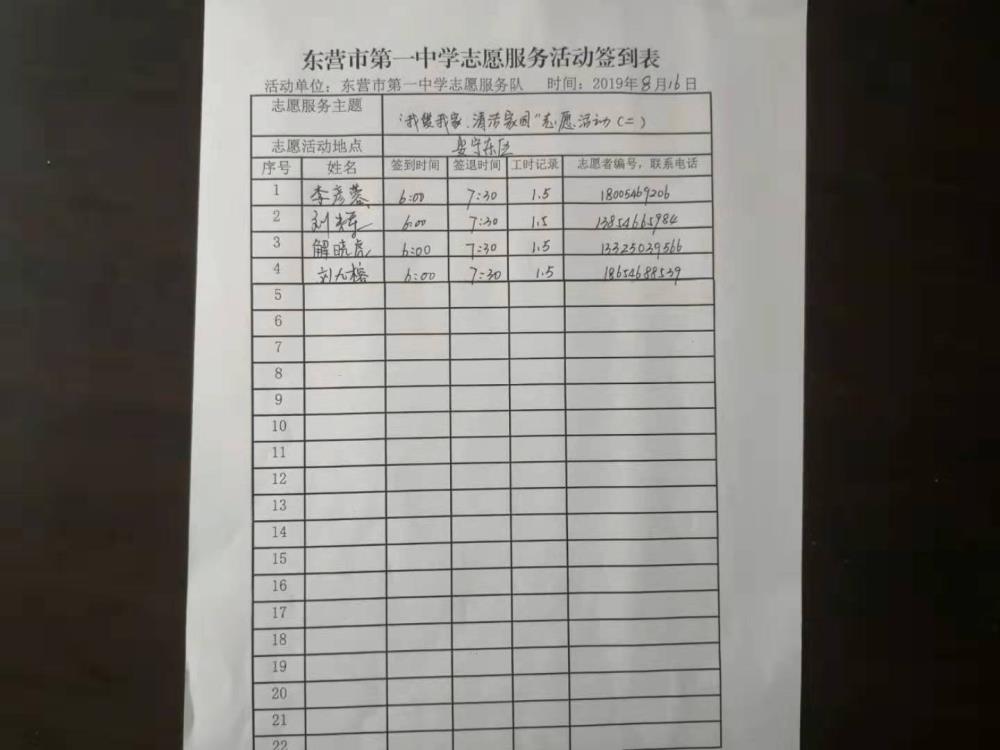 东营市第一中学志愿服务活动签到表
活动单位：东营市第一中学志愿服务队 时间：2019年8月16日
志愿服务主题 "我爱我家、清洁家园"志愿活动(二)
志愿活动地点 安宁东区
序号 姓名 签到时间 签退时间 工时记录 志愿者编号，联系电话
1 李彦蓉 6:00 7:30 1.5 18005469206
2 刘辉 6:00 7:30 1.5 13854665984
3 解晓虎 6:00 7:30 1.5 13325039566
4 刘九榕 6:00 7:30 1.5 18654688539
5
6
7
8
9
10
11
12
13
14
15
16
17
18
19
20
21
22